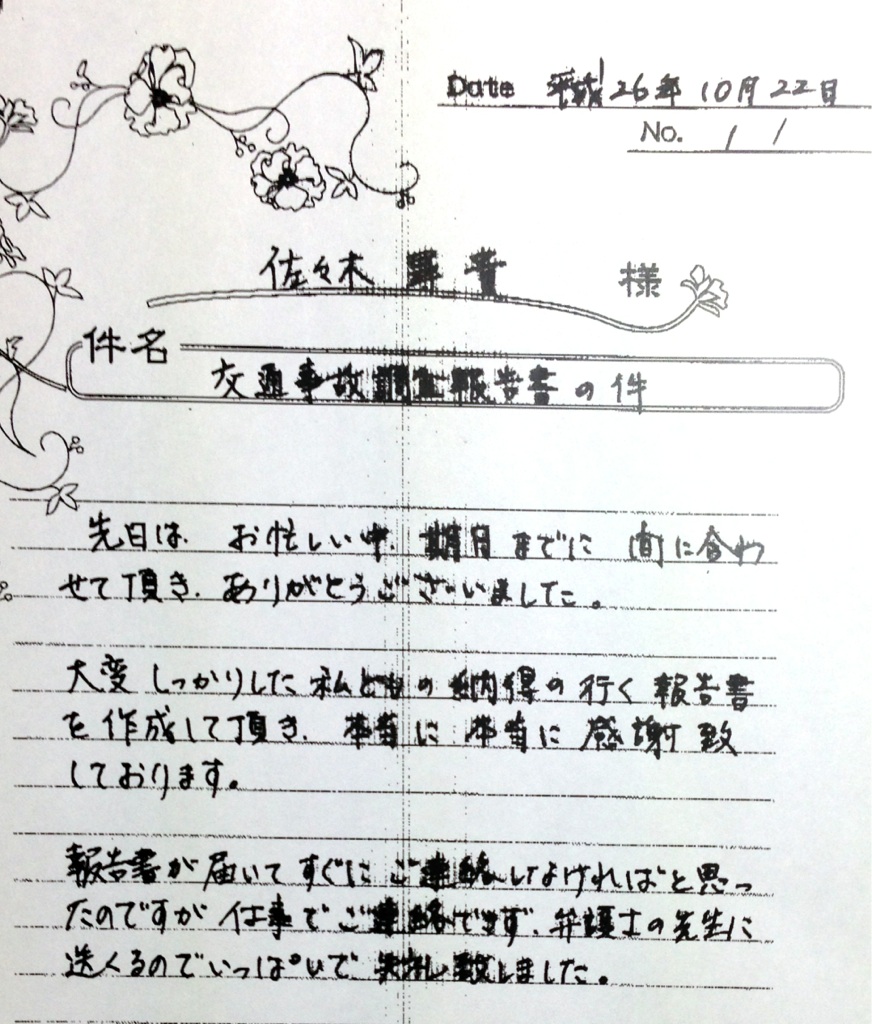 Date 平成26年10月22日
No. 1 /
佐々木 様
件名
交通事故調査報告書の件
先日は、お忙しい中、期日までに間に合わ
せて頂き、ありがとうございました。
大変しっかりした私どもの納得の行く報告書
を作成して頂き、本当に本当に感謝致
しております。
報告書が届いてすぐにご連絡しなければと思っ
たのですが仕事でご連絡できず、弁護士の先生に
送くるのでいっぱいで失礼致しました。